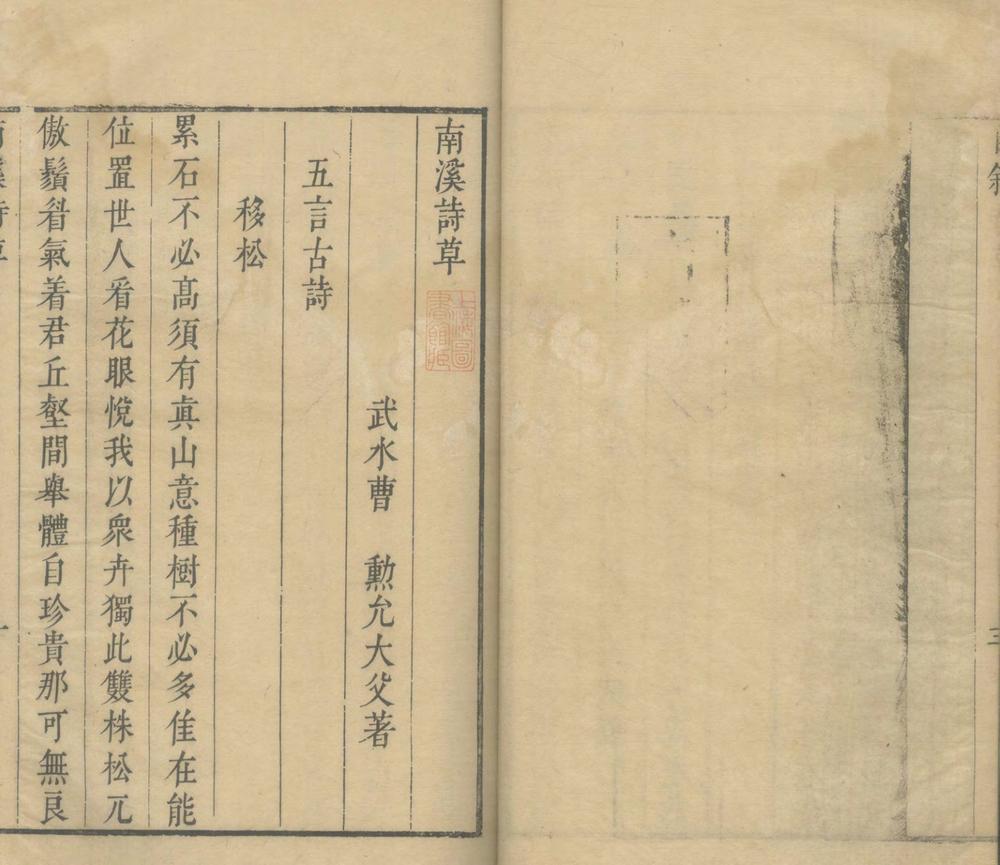 三
南溪詩草
上海圖書館藏
武水曹　勳允大父著
五言古詩
移松
累石不必高須有眞山意種樹不必多隹在能
位置世人看花眼悅我以衆卉獨此雙株松兀
傲鬚眉氣着君丘壑間舉體自珍貴那可無良
南溪詩草
一